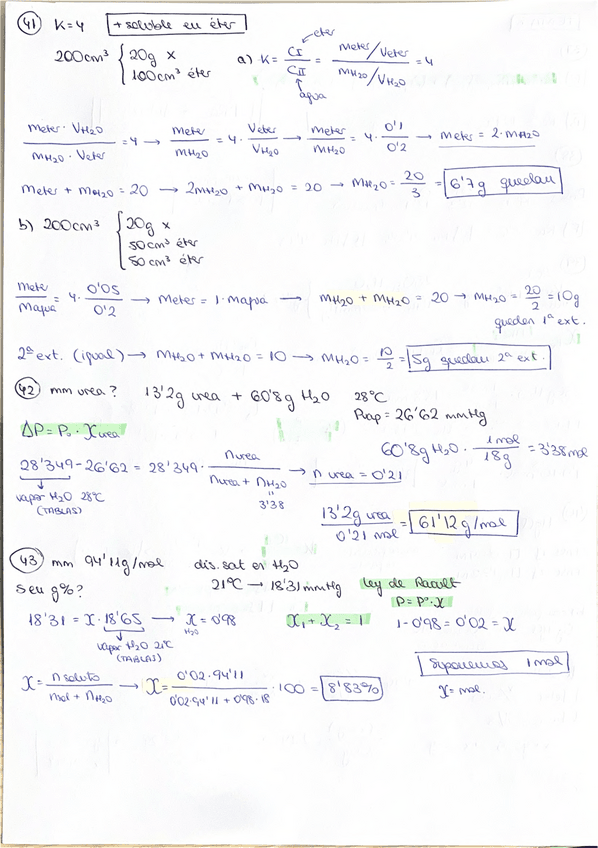 41 K=4 + soluble en éter
200cm³ { 20g x
100cm³ éter
a) K = CI / CII = meter/Veter / mH2O/VH2O = 4
éter
agua
meter · VH2O / mH2O · Veter = 4 → meter / mH2O = 4 · Veter / VH2O → meter / mH2O = 4 · 0'1 / 0'2 → meter = 2 · mH2O
meter + mH2O = 20 → 2mH2O + mH2O = 20 → mH2O = 20 / 3 = 6'7g quedan
b) 200cm³ { 20g x
50cm³ éter
50cm³ éter
meter / magua = 4 · 0'05 / 0'2 → meter = 1 · magua → mH2O + mH2O = 20 → mH2O = 20 / 2 = 10g
quedan 1ª ext.
2ª ext. (igual) → mH2O + mH2O = 10 → mH2O = 10 / 2 = 5g quedan 2ª ext.
42 mm urea? 13'2g urea + 60'8g H2O 28ºC
Pvap = 26'62 mmHg
ΔP = P₀ · Xurea
60'8g H2O · 1mol / 18g = 3'38mol
28'349 - 26'62 = 28'349 · nurea / nurea + nH2O → n urea = 0'21
3'38
vapor H2O 28ºC
(TABLAS)
13'2g urea / 0'21 mol = 61'12 g/mol
43 mm 94'11g/mol dis. sat en H2O
s en g%? 21ºC → 18'31mmHg Ley de Raoult
P = Pº · X
18'31 = X · 18'65 → X H2O = 0'98 X1 + X2 = 1 1 - 0'98 = 0'02 = X
vapor H2O 21ºC
(TABLAS)
Suponemos 1mol
X = n soluto / nsol + nH2O → X = 0'02 · 94'11 / 0'02·94'11 + 0'98·18 · 100 = 8'83% X = mol.